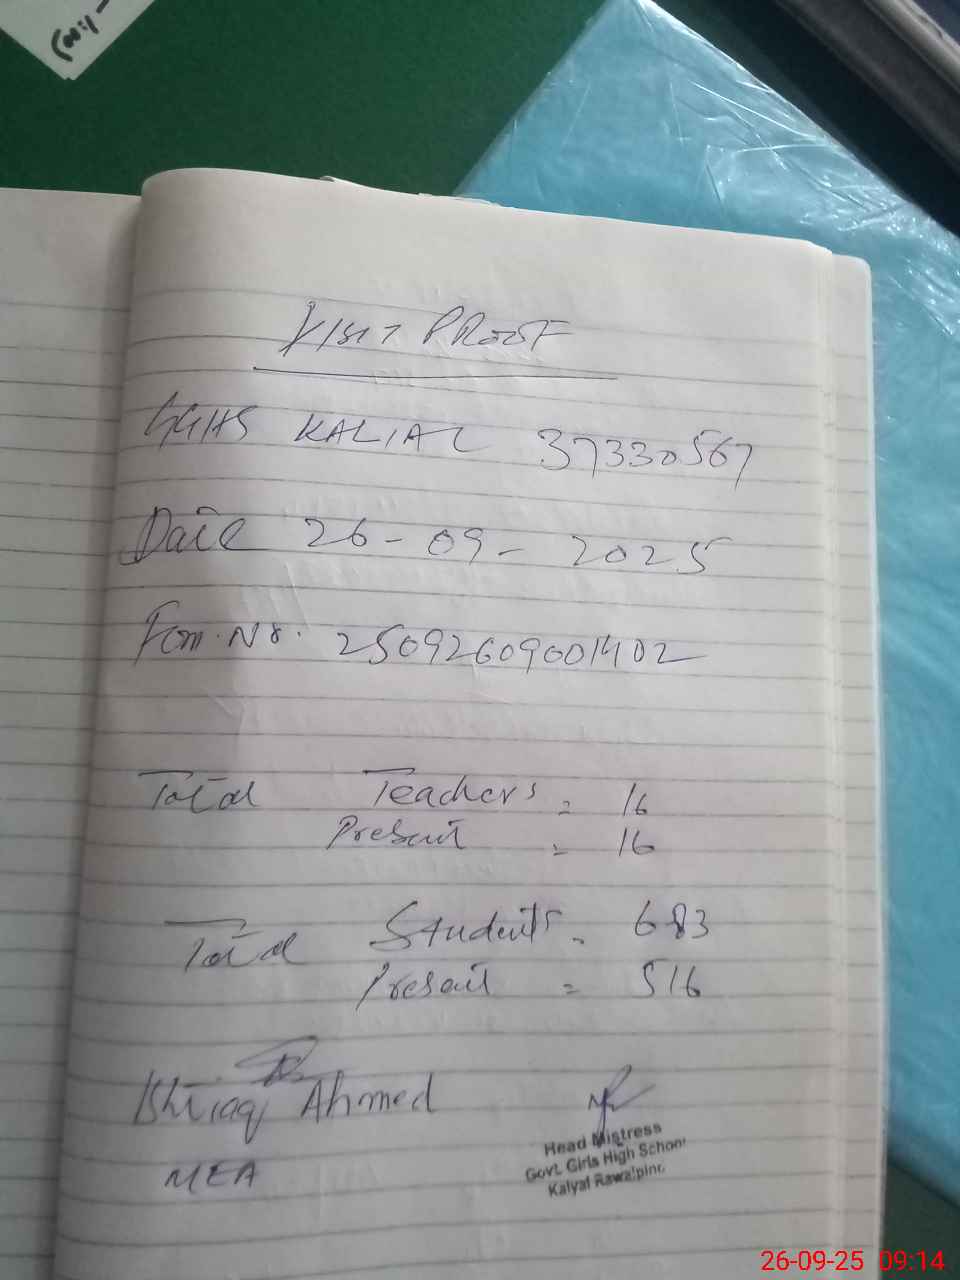 VISIT PROOF
GGHS KALIAL 37330567
Date 26-09-2025
Form.No. 25092609001402
Total Teachers = 16
Present = 16
Total Students = 683
Present = 516
Ishtiaq Ahmed
MEA
Head Mistress
Govt. Girls High School
Kalyal Rawalpindi
26-09-25 09:14